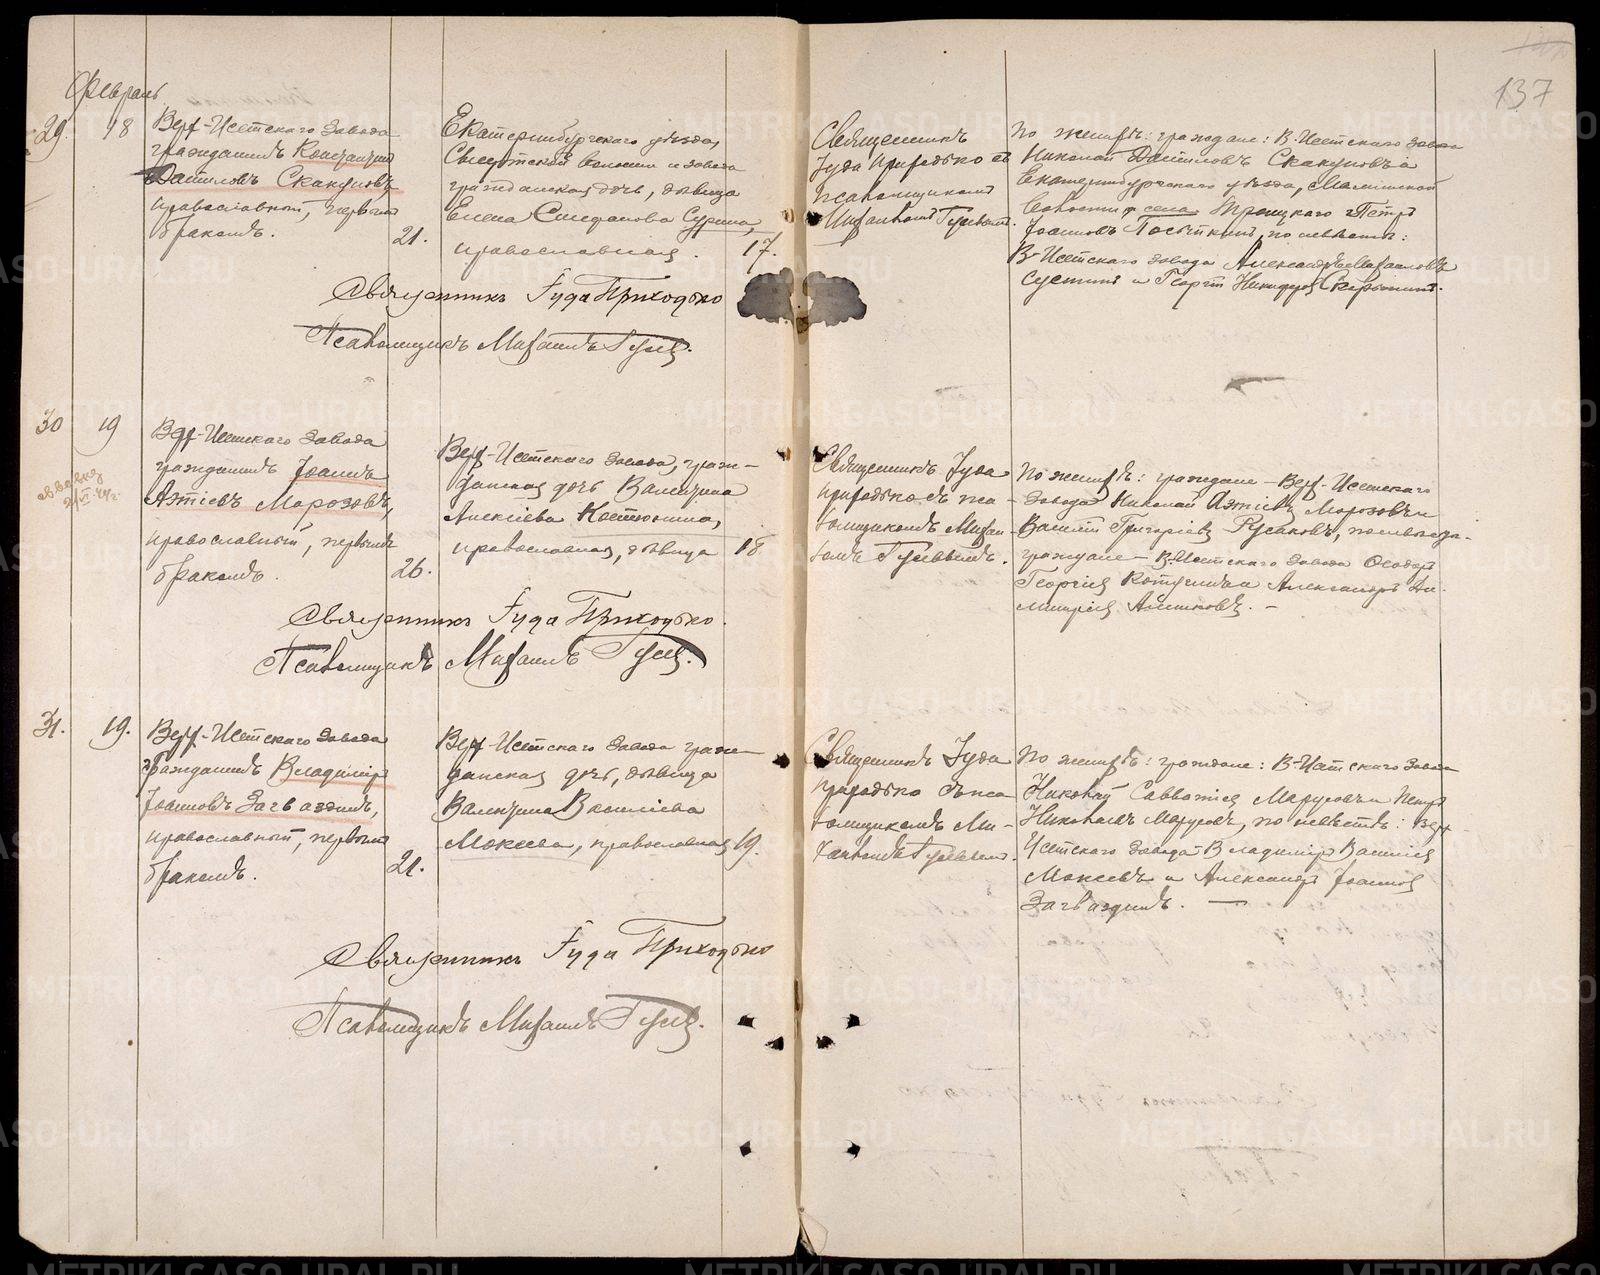 137
Февраль
29. 18
Верх-Исетского завода
гражданинъ Константинъ
Даниловъ Скакуновъ
православный, первымъ
бракомъ. 21.
Екатеринбургского уѣзда,
Сысертской волости и завода
гражданская дочь, дѣвица
Елена Стефанова Сурина,
православная. 17.
Священникъ
Іуда Приходько съ
псаломщикомъ
Михаиломъ Гусевымъ.
По женихѣ: граждане: В.-Исетского завода
Николай Даниловъ Скакуновъ и
Екатеринбургского уѣзда,
волости села Троицкого Петръ
Іоанновъ по невѣстѣ:
В-Исетского завода Александръ Михаиловъ
и Георгій
Священникъ Іуда Приходько
Псаломщикъ Михаилъ Гусев.
30 19
Верх-Исетского завода
гражданинъ Іоаннъ
Азтіевъ Морозовъ,
православный, первымъ
бракомъ. 26.
Верх-Исетского завода, граж-
данская дочь Валентина
Алексіева Костюнина,
православная, дѣвица 18
Священникъ Іуда
Приходько съ пса-
ломщикомъ Михаи-
ломъ Гусевымъ.
По женихѣ: граждане - Верх-Исетского
завода Николай Азтіевъ Морозовъ и
Василій Григоріев Русаковъ, по невѣстѣ-
граждане - В.Исетского завода Ѳеодоръ
Георгіев и Александръ Ди-
митріев
Священникъ Іуда Приходько.
Псаломщикъ Михаилъ Гусев.
31. 19.
Верх-Исетского завода
гражданинъ Владиміръ
Іоанновъ Загваздинъ,
православный, первымъ
бракомъ. 21.
Верх-Исетского завода граж-
данская дочь, дѣвица
Валентина Василіева
Мокеева, православная 19.
Священникъ Іуда
Приходько съ пса-
ломщикомъ Ми-
хаиломъ Гусевым.
По женихѣ: граждане: В-Исетского завода
Николай Савватіев Марусовъ и Петръ
Николаевъ Марусовъ, по невѣстѣ: Верх-
Исетского завода Владиміръ Василіев
Мокеевъ и Александръ Іоаннов
Загваздинъ. —
Священникъ Іуда Приходько
Псаломщикъ Михаилъ Гусев.
METRIKI.GASO-URAL.RU